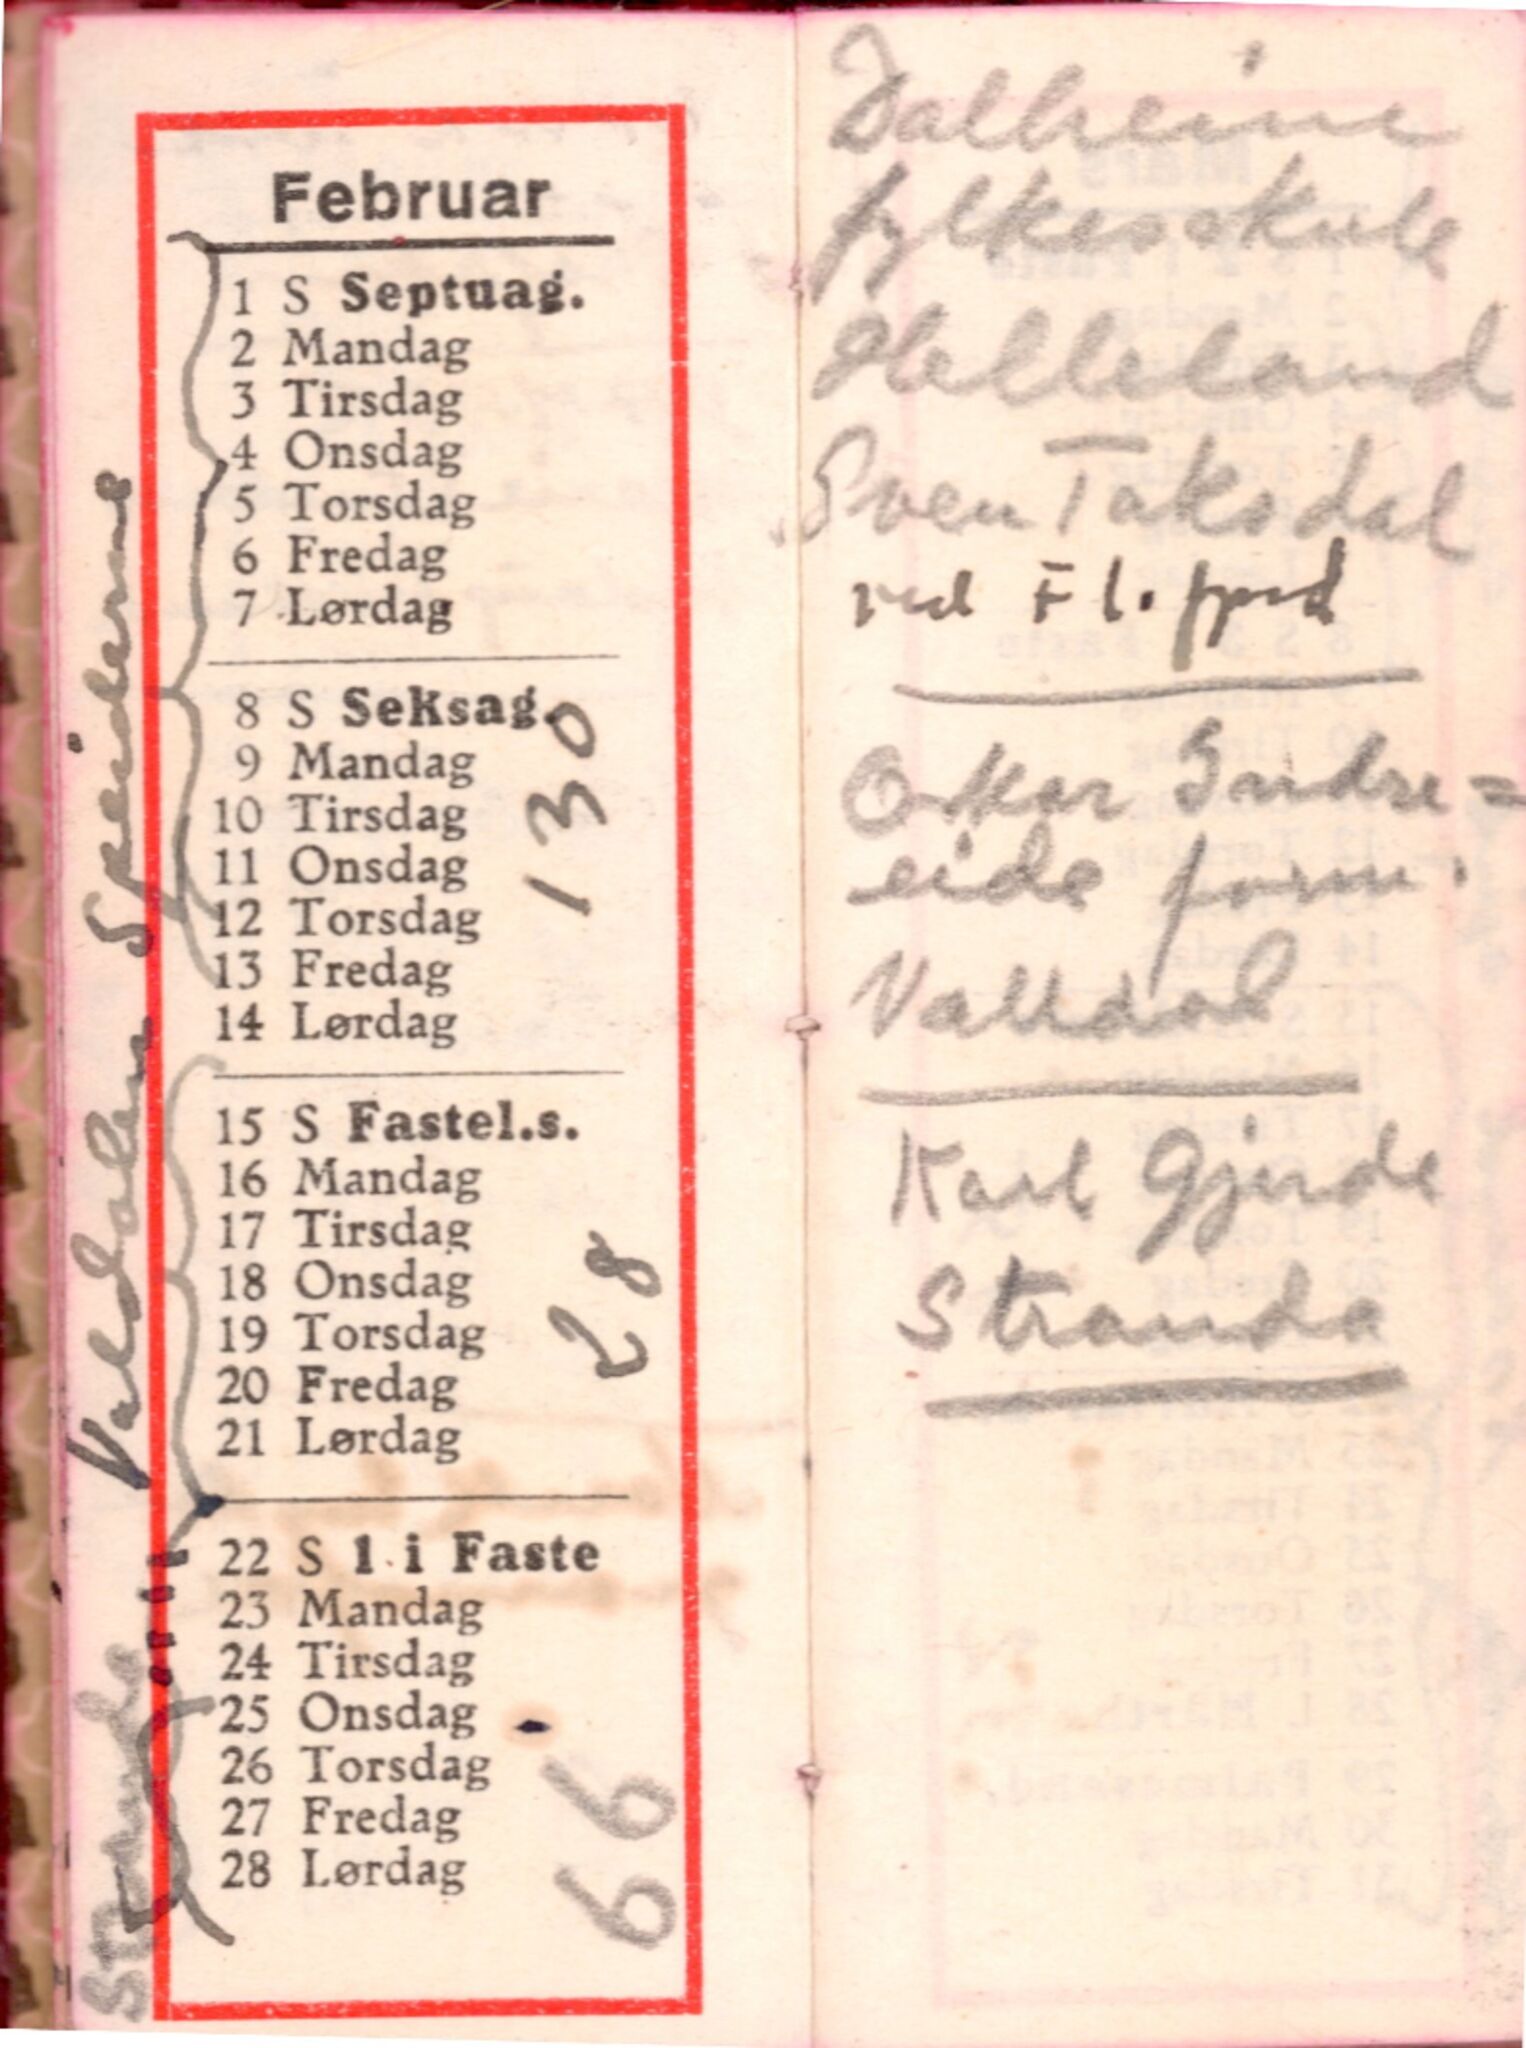 Februar
1 S Septuag.
2 Mandag
3 Tirsdag
4 Onsdag
5 Torsdag
6 Fredag
7 Lørdag
8 S Seksag.
9 Mandag
10 Tirsdag
11 Onsdag
12 Torsdag
13 Fredag
14 Lørdag
15 S Fastel.s.
16 Mandag
17 Tirsdag
18 Onsdag
19 Torsdag
20 Fredag
21 Lørdag
22 S 1 i Faste
23 Mandag
24 Tirsdag
25 Onsdag
26 Torsdag
27 Fredag
28 Lørdag
Speiderne
Valdalen
Stranda
130
28
66
Dalheim
fylkesskule
Helleland
Sven Taksdal
ved Fl. fjord
Oskar Indre=
eide form.
Valldal
Karl Gjerde
Stranda